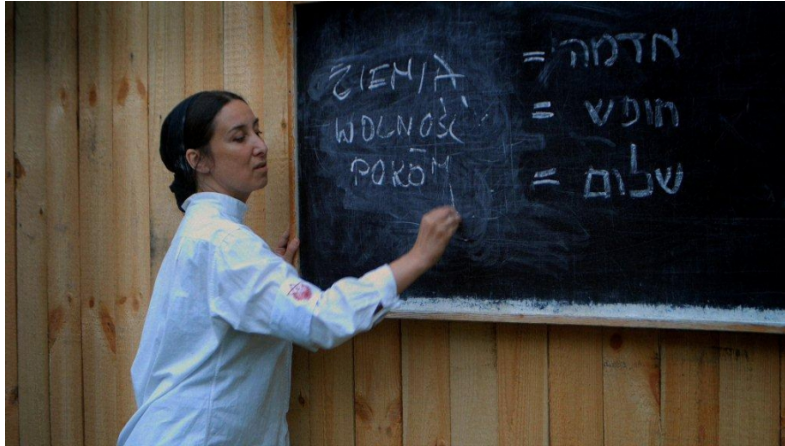 ZIEMIA = אדמה
WOLNOŚĆ = חופש
POKÓJ = שלום